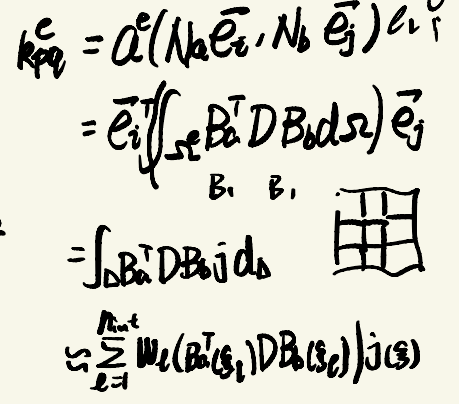 k^e_{pq} = a^e(N_a \vec{e_i}, N_b \vec{e_j})
= \vec{e_i}^T (∫_{Ω^e} B_a^T D B_b dΩ) \vec{e_j}
B_1 B_1
= ∫_Δ B_a^T D B_b j d_Δ
≈ \sum_{l=1}^{n_{int}} W_l (B_a^T(ξ_l) D B_b(ξ_l)) j(ξ)